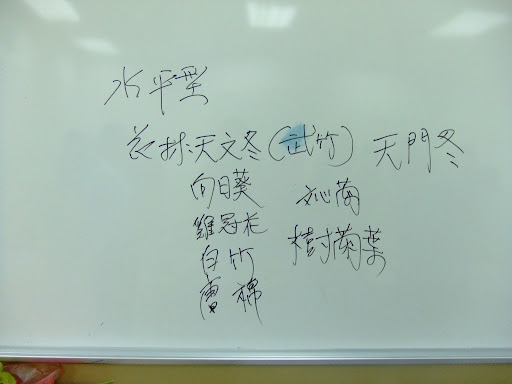 水平型
花材:天文冬(武竹) 天門冬
向日葵 文心蘭
雞冠花 樹蘭葉
白竹
唐棉